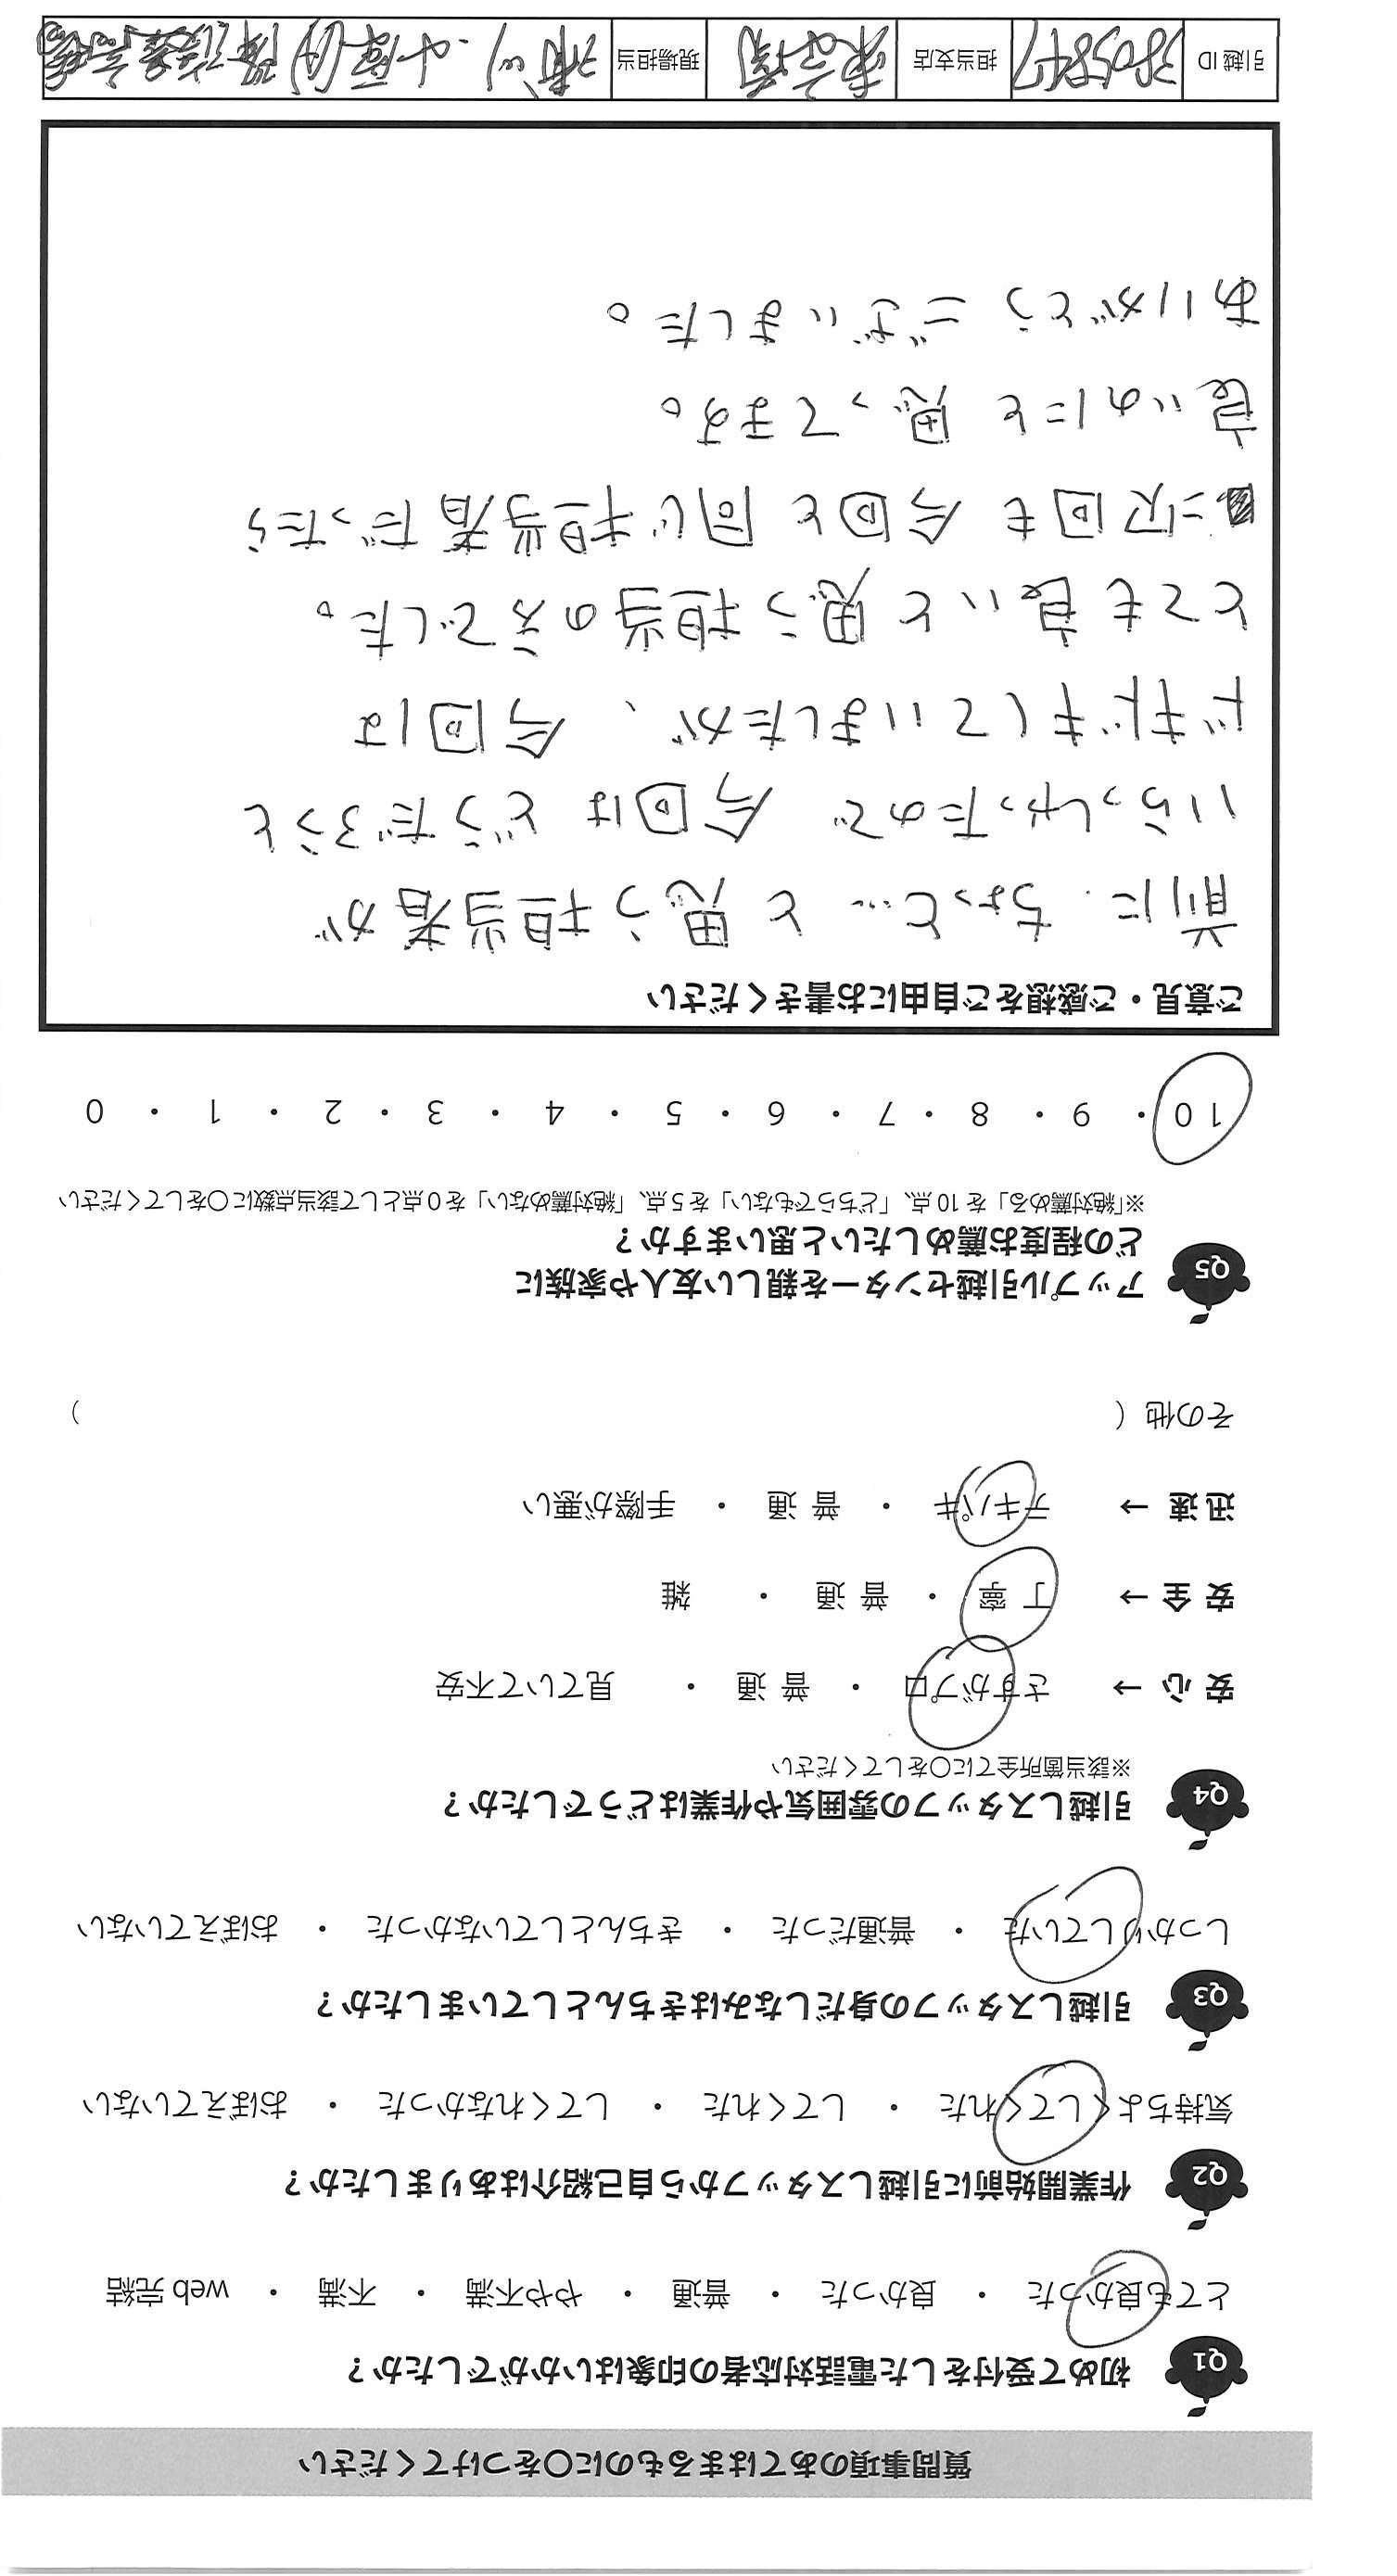 質問事項のあてはまるものに〇をつけてください
Q1 初めて受付をした電話対応者の印象はいかがでしたか？
とても良かった ・ 良かった ・ 普通 ・ やや不満 ・ 不満 ・ web 完結
Q2 作業開始前に引越しスタッフから自己紹介はありましたか？
気持ちよくしてくれた ・ してくれた ・ してくれなかった ・ おぼえていない
Q3 引越しスタッフの身だしなみはきちんとしていましたか？
しっかりしていた ・ 普通だった ・ きちんとしていなかった ・ おぼえていない
Q4 引越しスタッフの雰囲気や作業はどうでしたか？
※該当箇所全てに〇をしてください
安心 → さすがプロ ・ 普通 ・ 見ていて不安
安全 → 丁寧 ・ 普通 ・ 雑
迅速 → テキパキ ・ 普通 ・ 手際が悪い
その他（ ）
Q5 アップル引越センターを親しい友人や家族に
どの程度お薦めしたいと思いますか？
※「絶対薦める」を 10 点、「どちらでもない」を 5 点、「絶対薦めない」を 0 点として該当点数に〇をしてください
10 ・ 9 ・ 8 ・ 7 ・ 6 ・ 5 ・ 4 ・ 3 ・ 2 ・ 1 ・ 0
ご意見・ご感想をご自由にお書きください
前に、ちょっと… と思う担当者が
いらっしゃったので 今回はどうだろうと
ドギドギしていましたが、今回は
とても良いと思う担当の方でした。
次回も今回と同じ担当者だったら
良いのにと思ってます。
ありがとうございました。
引越 ID 3805847 担当支店 現場担当